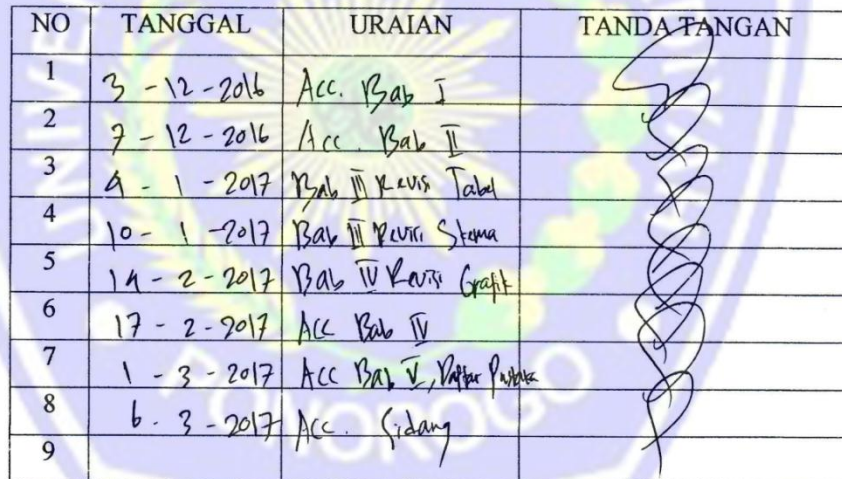 NO TANGGAL URAIAN TANDA TANGAN
1 3 - 12 - 2016 Acc. Bab I
2 7 - 12 - 2016 Acc. Bab II
3 4 - 1 - 2017 Bab III Revisi Tabel
4 10 - 1 - 2017 Bab III Revisi Skema
5 14 - 2 - 2017 Bab IV Revisi Grafik
6 17 - 2 - 2017 Acc Bab IV
7 1 - 3 - 2017 Acc Bab V, Daftar Pustaka
8 6 - 3 - 2017 Acc. Sidang
9
PONOROGO